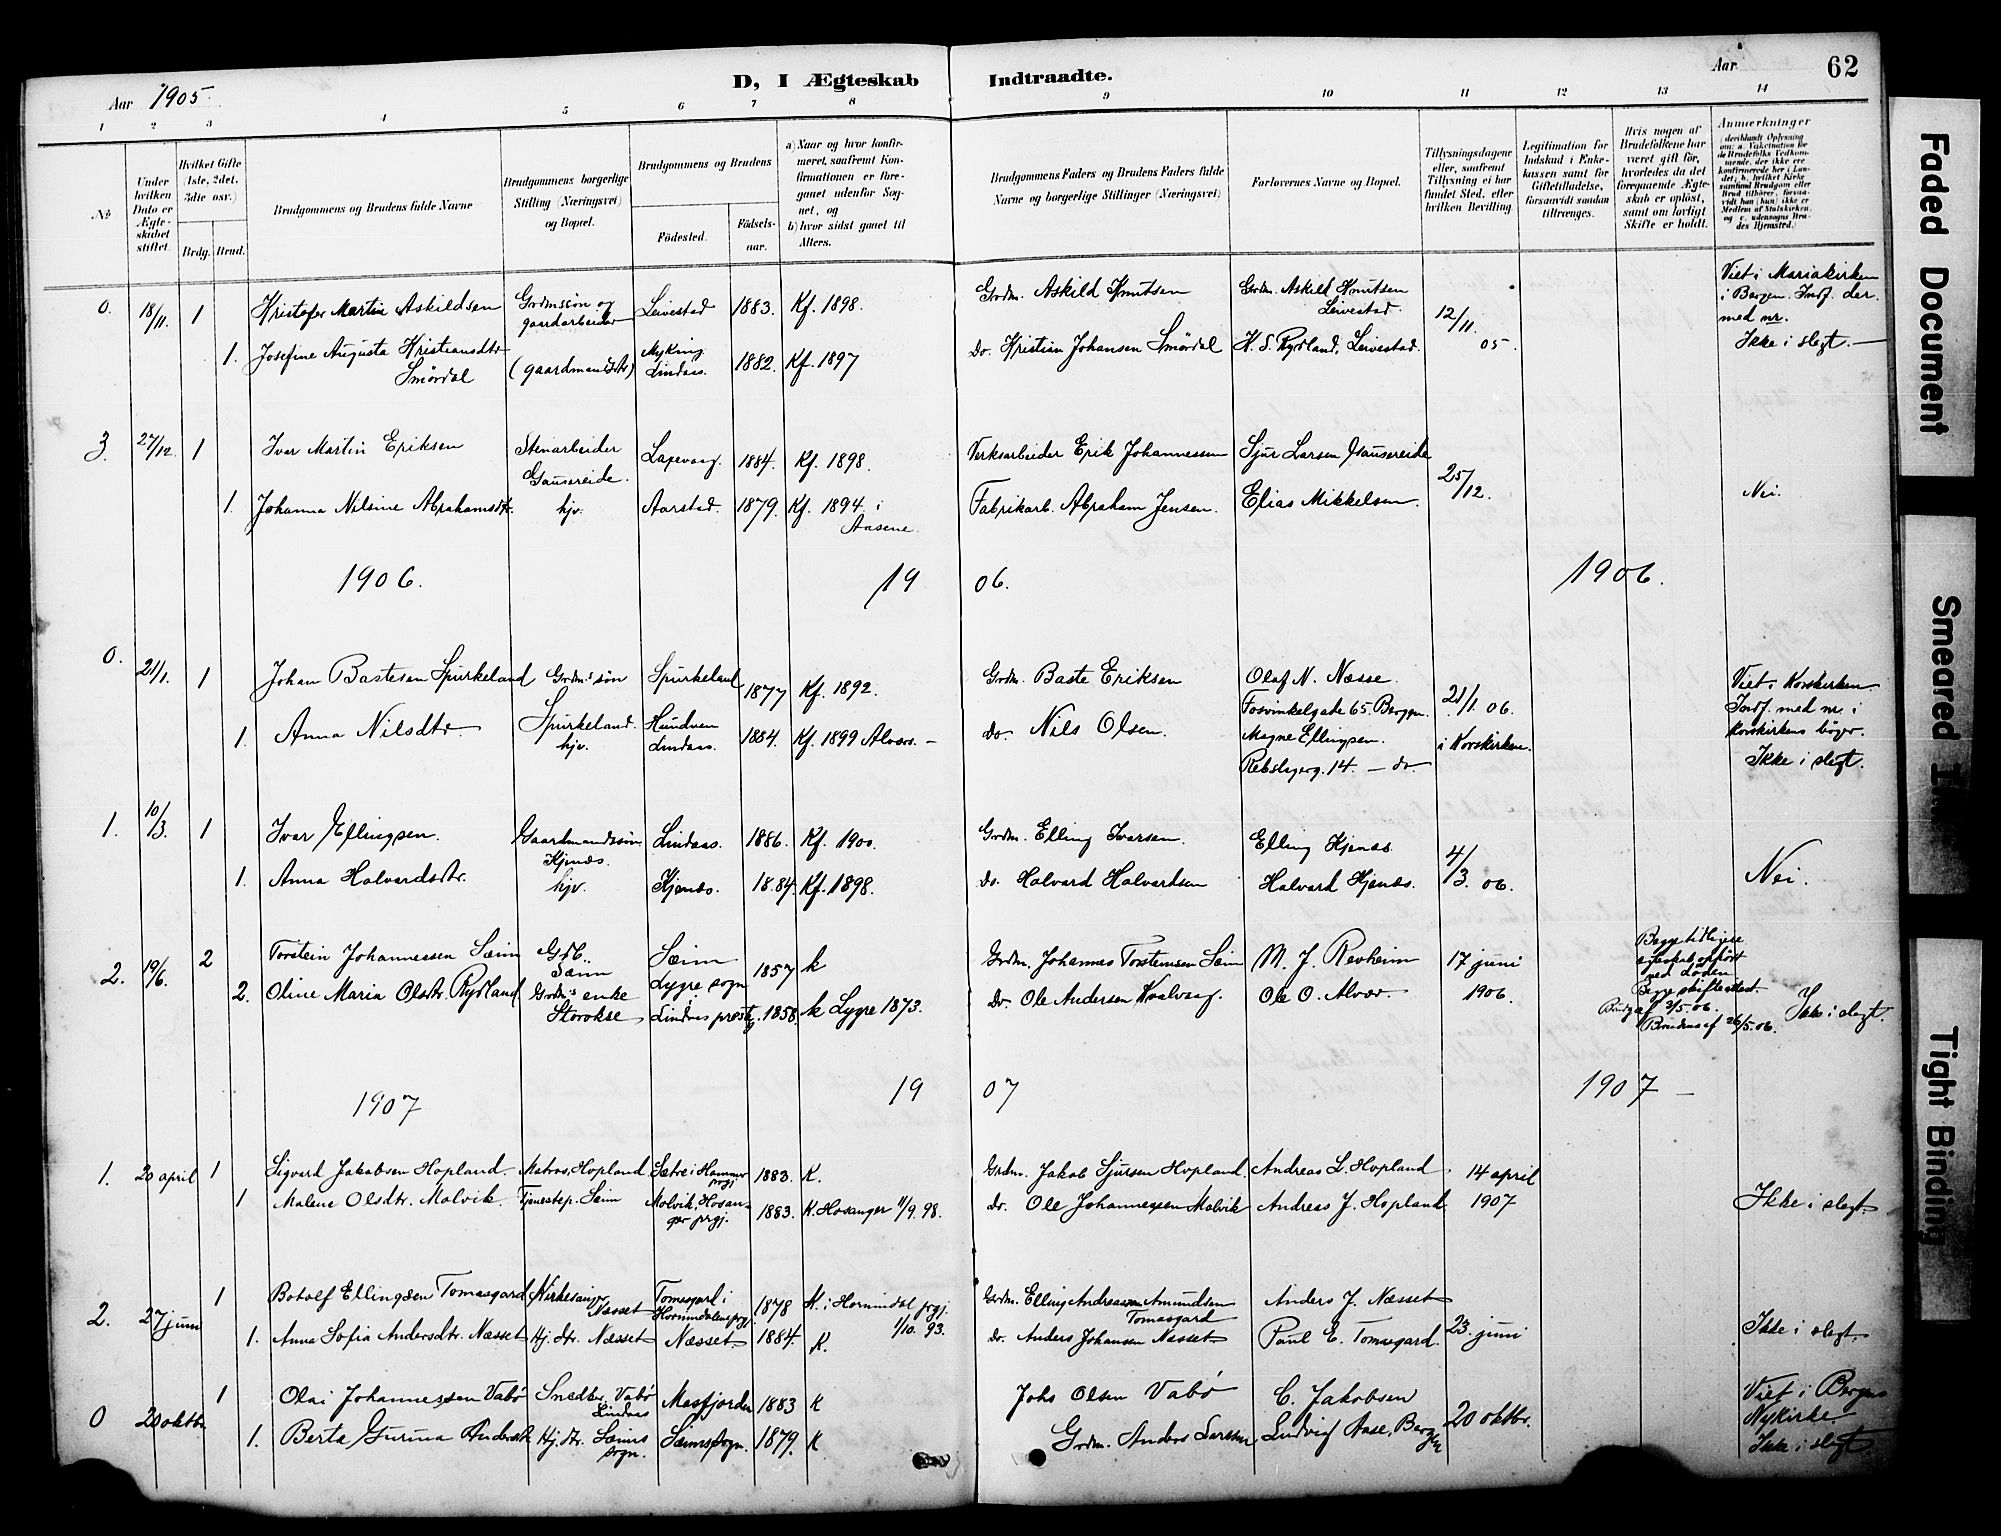 Aar 1905.
D, I Ægteskab Indtraadte.
Aar 62
1 2 3 4 5 6 7 8 9 10 11 12 13 14
No
Under hvilken Dato er Ægteskabet stiftet.
Hvilket Gifte (1ste, 2det, 3die osv.)
Brdg. Brud.
Brudgommens og Brudens fulde Navne
Brudgommens borgerlige Stilling (Næringsvei) og Bopæl.
Brudgommens og Brudens
Fødested. Fødselsaar.
a) Naar og hvor konfirmeret, saafremt Konfirmationen er foregaaet udenfor Sognet, og
b) hvor sidst gaaet til Alters.
Brudgommens Faders og Brudens Faders fulde Navne og borgerlige Stillinger (Næringsvei)
Forlovernes Navne og Bopæl.
Tillysningsdagene eller, saafremt Tillysning ei har fundet Sted, efter hvilken Bevilling.
Legitimation for Indskud i Enkekassen samt for Giftetilladelse, forsaavidt saadan tiltrænges.
Hvis nogen af Brudefolkene har været gift før, hvorledes da det foregaaende Ægteskab er opløst, samt om lovligt Skifte er holdt.
Anmærkninger
0. 18/11. 1 Kristofer Martin Askildsen Grdmssøn og gaardarbeider Leivestad 1883. Kf. 1898. Grdm. Askild Knutsen Grdm. Askild Knutsen Leivestad. 12/11. 05. Viet i Mariakirken i Bergen. Indf. der. med nr.
1. Josefine Augusta Kristiansdtr Smördal (gaardmandsdtr) Myking Lindaas. 1882. Kf. 1897 Do. Kristian Johansen Smördal K. S. Rydland, Leivestad. Ikke i slegt.
3. 27/12. 1 Ivar Martin Eriksen Stenarbeider Gausereide. Laxevaag. 1884. Kf. 1898. Verksarbeider Erik Johannessen Sjur Larsen Gausereide 25/12.
1. Johanna Nilsine Abrahamsdtr. hjv. Aarstad. 1879. Kf. 1894 i Aasene. Fabrikarb. Abraham Jensen. Elias Mikkelsen. Nei.
1906. 1906. 1906.
0. 21/1. 1 Johan Bastesen Spurkeland Grdm.s søn Spurkeland. Spurkeland 1877 Kf. 1892. Grdm. Baste Eriksen Olaf N. Næsse. Fosvinkelgate 65. Bergen. 21/1. 06. i Korskirken. Viet i Korskirken. Indf. med nr. i Korskirkens bøger.
1. Anna Nilsdtr hjv. Hundven Lindaas. 1884. Kf. 1899 Alvers. Do. Nils Olsen. Magne Ellingsen. Rebslagerg. 14. — do. Ikke i slegt.
1. 10/3. 1 Ivar Ellingsen. Gaardmandssøn Kjenes. Lindaas. 1886. Kf. 1900. Grdm. Elling Ivarsen. Elling Kjenes 4/3. 06.
1. Anna Halvardsdtr. hjv. Kjenes. 1884. Kf. 1898. do. Halvard Halvardsen Halvard Kjenes. Nei.
2. 19/6. 2 Torstein Johannessen Sæim Grdb. Sæim Sæim 1857 k Grdm. Johannes Torsteinsen Seim M. J. Revheim 17 juni 1906. Begge tidligere egteskab opløst ved døden. Begge skifteattest. Brudg. af 3/5. 06. Brudens af 26/5. 06.
2. Oline Maria Olsdtr. Rydland Grdm.s enke Storokse Lygre sogn Lindaas prestg. 1858. k Lygre 1873. do. Ole Andersen Kvalvaag. Ole O. Alver. Ikke i slegt.
1907 1907 1907
1. 20 april 1 Sigvard Jakobsen Hopland. Matros, Hopland Sætre i Hammer prgj. 1883. K. Grdm. Jakob Sjursen Hopland. Andreas L. Hopland 14 april 1907
1 Malene Olsdtr. Molvik. Tjenestep. Seim Molvik, Hosanger prgj. 1883. K. Hosanger 11/9. 98. do. Ole Johannessen Molvik Andreas J. Hopland Ikke i slegt.
2. 27 juni 1 Botolf Ellingsen Tomasgard Kirkesanger Næsset Tomasgard i Hornindalens prgj. 1878 K. i Hornindal prgj. 1/10. 93. Grdm. Elling Andreassen Amundsen Tomasgard Anders J. Næsset 23. juni
1. Anna Sofia Andersdtr. Næsset Hj. dtr. Næsset Næsset 1884. K. do. Anders Johansen Næsset Paul E. Tomasgard. Ikke i slegt.
0 20 oktbr 1 Olai Johannessen Vabø Snedker, Vabø Lindaas Masfjorden 1883 K Johs Olsen Vabø C. Jakobsen 20 oktbr. Viet i Bergens Nykirke
1. Berta Gurina Andersdtr Hj. dtr. Seims sogn. Seimssogn. 1879. K Grdm. Anders Larssen Ludvig Aase, Bergen Ikke i slegt.
Faded Document
Smeared Ink
Tight Binding